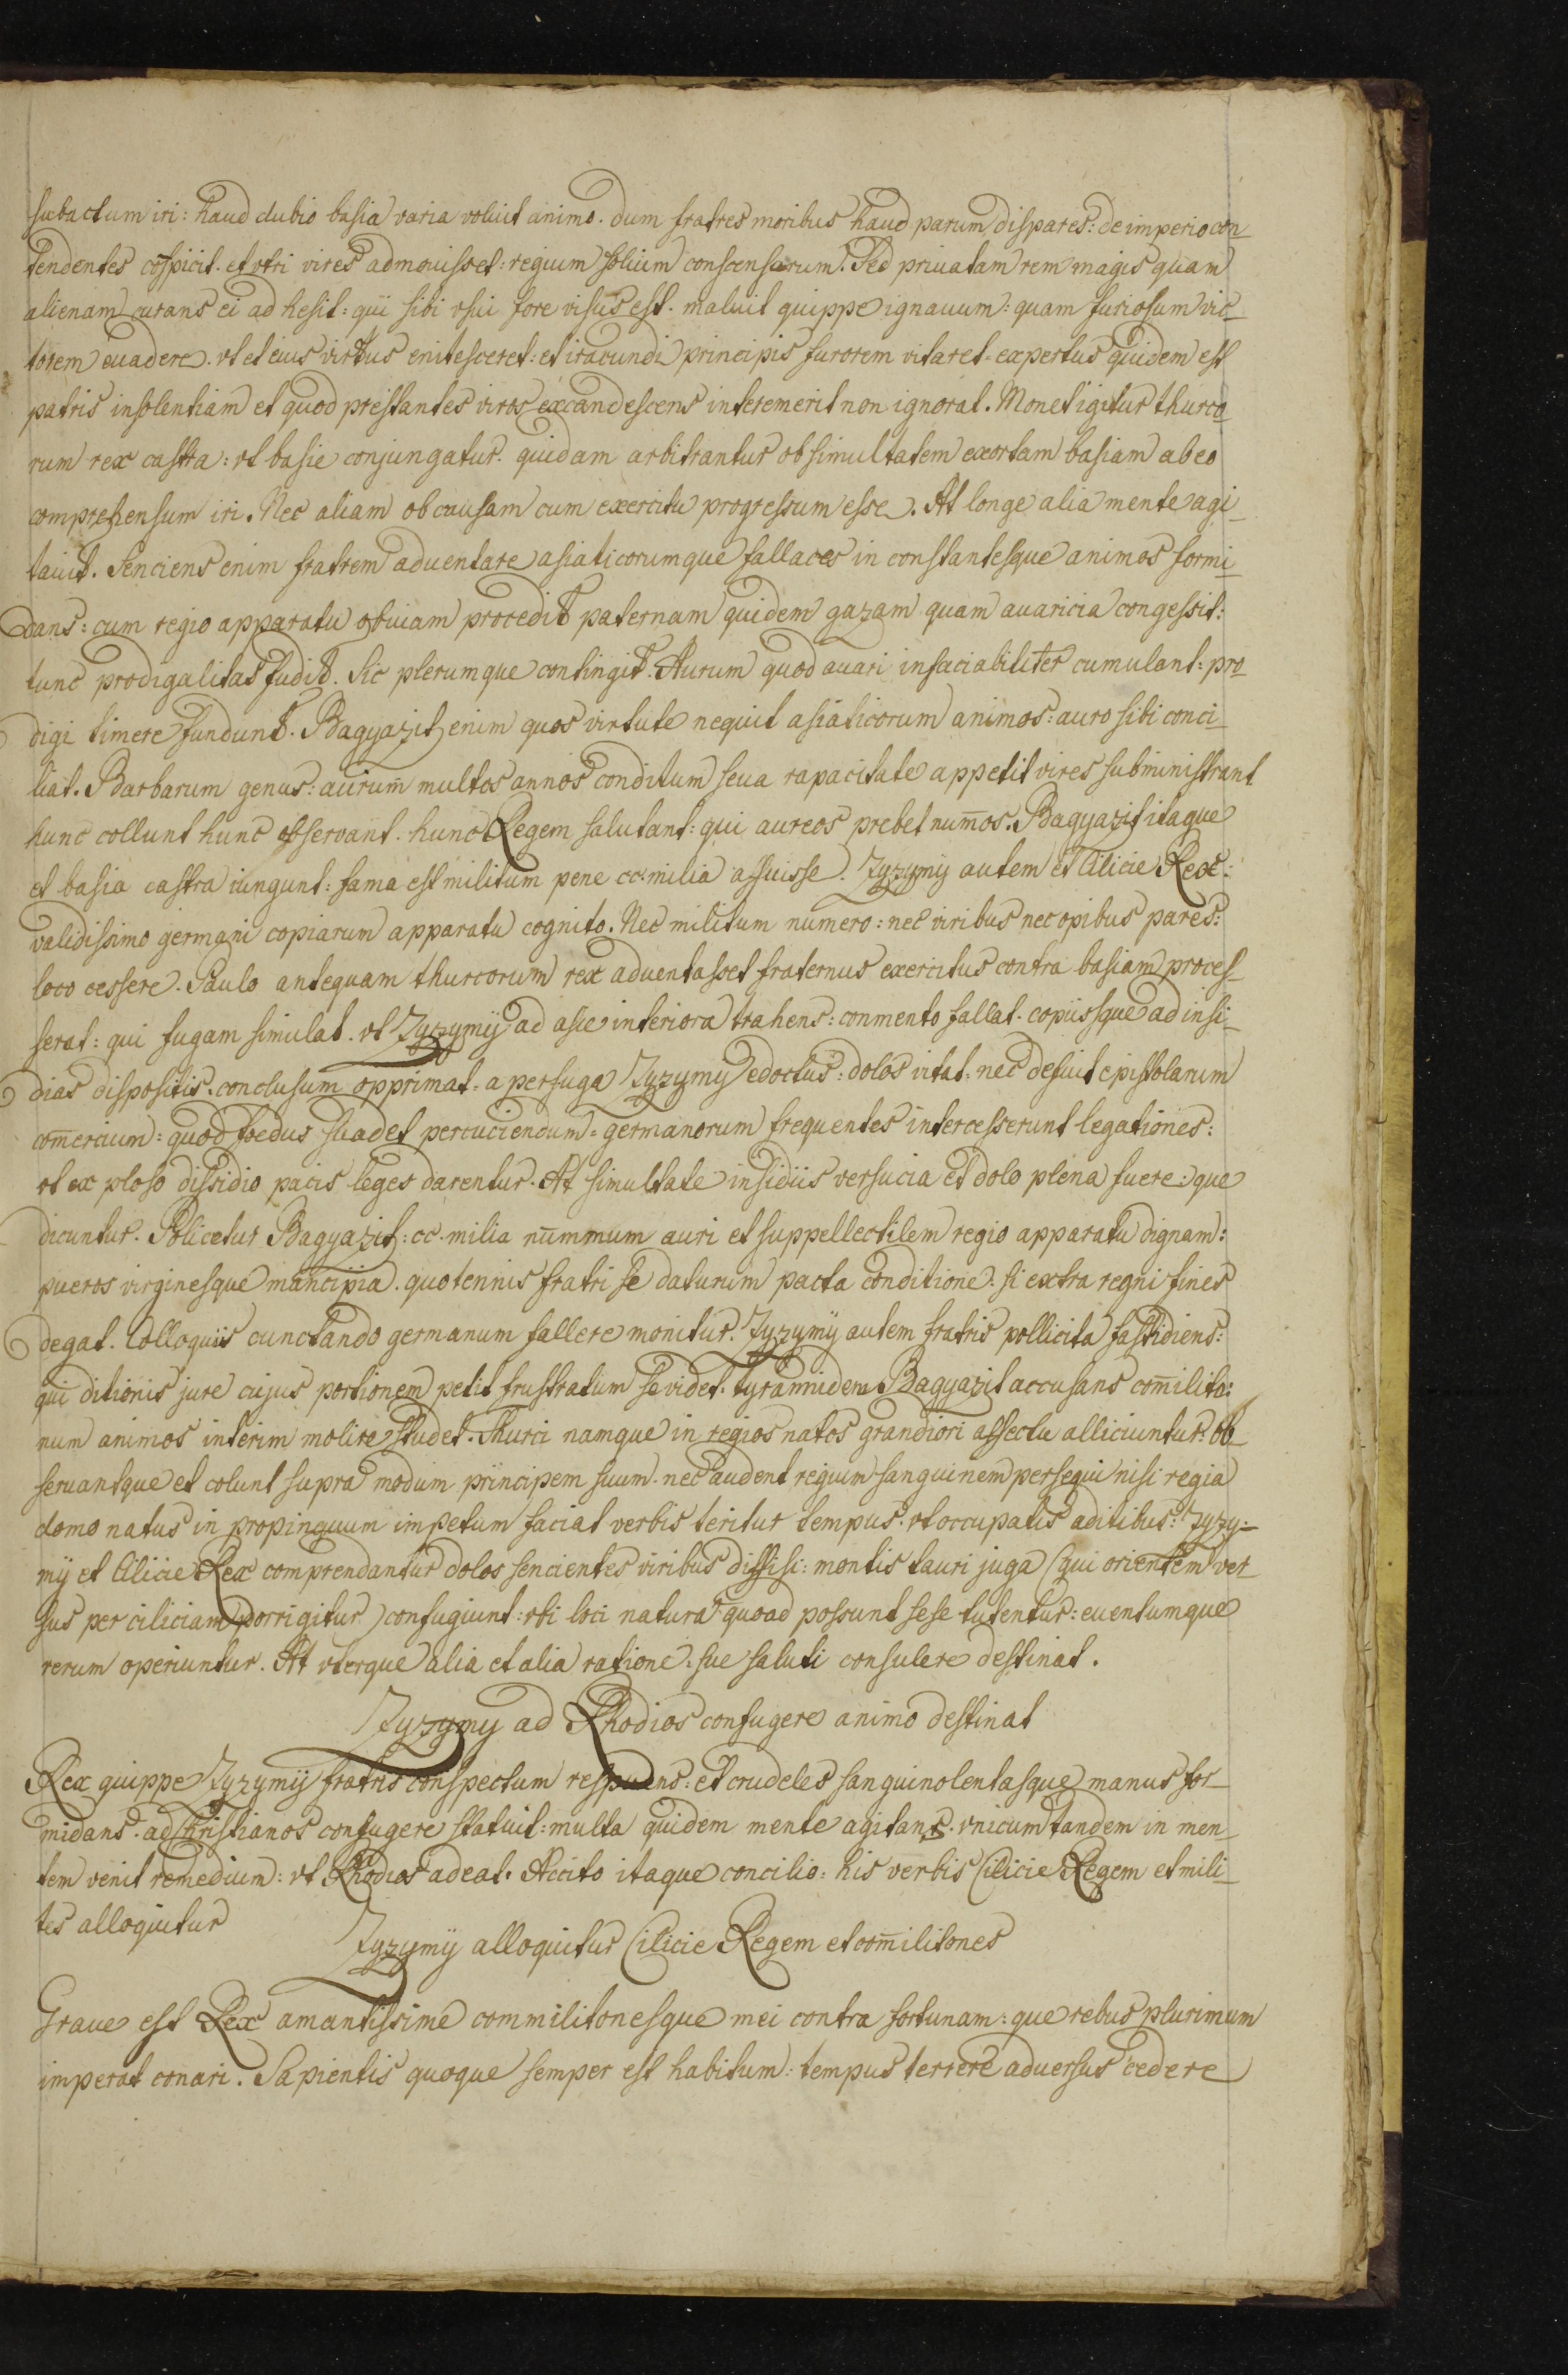 subactum iri: haud dubio basia varia volvit animo. dum fratres moribus haud parum dispares: de imperio con_
tendentes cospicit. et vtri vires admouisset: regium solium conscensurum. Sed priuatam rem magis quam
alienam curans ei ad hesit: qui sibi vsui fore visus est. maluit quippe ignauum: quam furiosum vic_
torem euadere. vt et eius virtus enitesceret: et iracundi principis furorem vitaret. expertus quidem est
patris insolentiam et quod prestantes viros excandescens interemerit non ignorat. Monet igitur thurco_
rum rex castra: vt basie conjungatur. quidam arbitrantur ob simultatem exortam basiam ab eo
comprehensum iri. Nec aliam ob causam cum exercitu progressum esse. At longe alia mente agi_
tauit. Senciens enim fratrem aduentare asiaticorumque fallaces in constantesque animos formi_
dans: cum regio apparatu obuiam procedit paternam quidem gazam quam auaricia congessit:
tunc prodigalitas fudit. Sic plerumque contingit. Aurum quod auari insaciabiliter cumulant: pro_
digi timere fundunt. Bagyazit enim quos virtute nequit asiaticorum animos: auro sibi conci_
liat. Barbarum genus: aurum multos annos conditum seua rapacitate appetit vires subministrant
hunc collunt hunc observant. hunc Regem salutant: qui aureos prebet num̅os. Bagyazit itaque
et basia castra iungunt: fama est militum pene cc. milia affuisse. Zyzymÿ autem et Cilicie Rex:
validissimo germani copiarum apparatu cognito. Nec militum numero: nec viribus nec opibus pares:
loco cessere. Paulo antequam thurcorum rex aduentasset fraternus exercitus contra basiam proces_
serat: qui fugam simulat. vt Zyzymÿ ad asie interiora trahens: conmento fallat. copiisque ad insi_
dias dispositis. conclusum opprimat. a perfuga Zyzymy edoctus: dolos vitat. nec defuit epistolarum
com̅ercium: quod foedus suadet percuciendum. germanorum frequentes intercesserunt legationes:
vt ex ploso dissidio pacis leges darentur. At simultate insidiis versucia et dolo plena fuere: que
dicuntur. Policetur Bagyazit: cc. milia nummum auri et suppellectilem regio apparatu dignam:
pueros virginesque mancipia. quotennis fratri se daturum pacta conditione. si extra regni fines
degat. Colloquiis cunctando germanum fallere monitur. Zyzymÿ autem fratris pollicita fastidiens:
qui ditionis jure cujus portionem petit frustratum se videt. tyrannidem Bagyazit accusans com̅ilito:
num animos interim molire studet. Thurci namque in regios natos grandiori affectu alliciuntur. ob_
seruantque et colunt supra modum principem suum. nec audent regium sanguinem persequi nisi regia
domo natus in propinquum impetum faciat verbis teritur tempus. vt occupatis aditibus: Zyzy:_
mÿ et Cilicie Rex comprendantur dolos sencientes viribus diffisi: montis tauri juga (qui orientem ver_
sus per ciliciam porrigitur) confugiunt: vbi loci natura quoad possunt sese tutentur: euentumque
rerum operiuntur. At vterque alia et alia ratione. sue saluti consulere destinat.
Zyzymy ad Rhodios confugere animo destinat
Rex quippe Zyzymÿ fratris conspectum respuens: et crudeles sanguinolentasque manus for_
midans. ad christianos confugere statuit: multa quidem mente agitans. vnicum tandem in men_
tem venit remedium: vt Rhodios adeat. Accito itaque concilio: his verbis Cilicie Regem et mili_
tes alloquitur
Zyzymÿ alloquitur Cilicie Regem et com̅ilitones
Graue est Rex amantissime commilitonesque mei contra fortunam: que rebus plurimum
imperat conari. Sapientis quoque semper est habitum: tempus terrere aduersus cedere